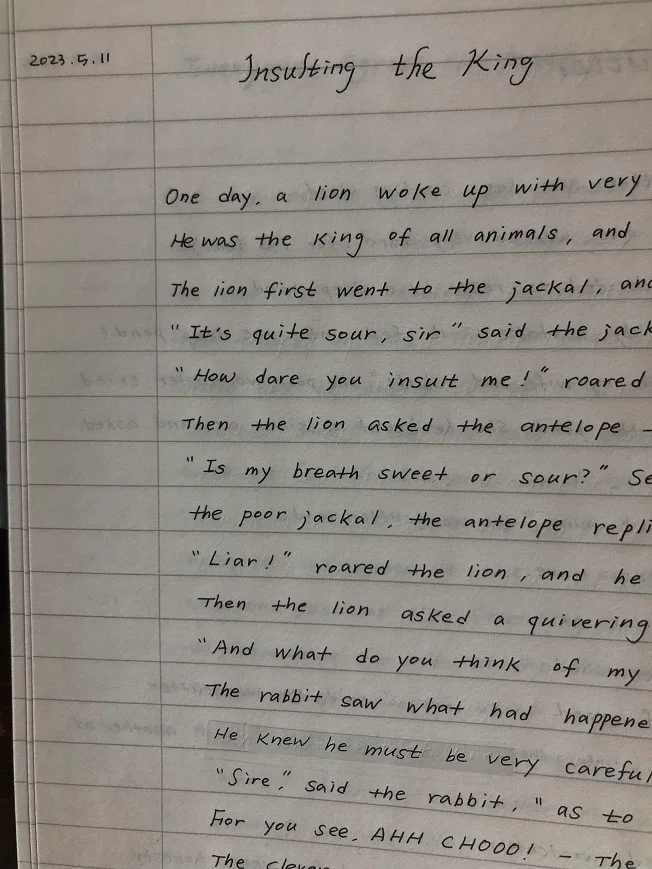 2023.5.11
Insulting the King
One day, a lion woke up with very
He was the King of all animals, and
The lion first went to the jackal, and
"It's quite sour, sir" said the jack
"How dare you insult me!" roared
Then the lion asked the antelope –
"Is my breath sweet or sour?" Se
the poor jackal, the antelope repli
"Liar!" roared the lion, and he
Then the lion asked a quivering
"And what do you think of my
The rabbit saw what had happene
He knew he must be very careful
"Sire," said the rabbit, "as to
For you see, AHH CHOOO! – The
The clever